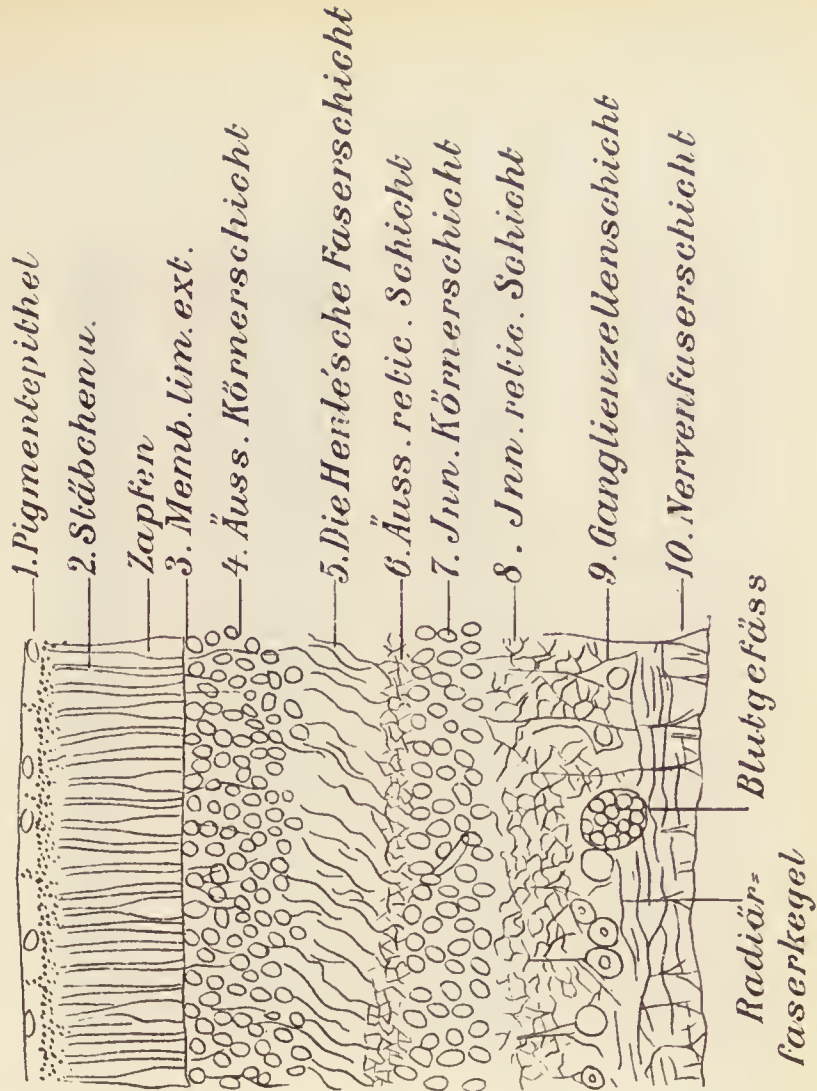 1. Pigmentepithel
2. Stäbchen u.
Zapfen
3. Memb. lim. ext.
4. Äuss. Körnerschicht
5. Die Henle'sche Faserschicht
6. Äuss. retic. Schicht
7. Jnn. Körnerschicht
8. Jnn. retic. Schicht
9. Ganglienzellenschicht
10. Nervenfaserschicht
Blutgefäss
Radiär=
faserkegel